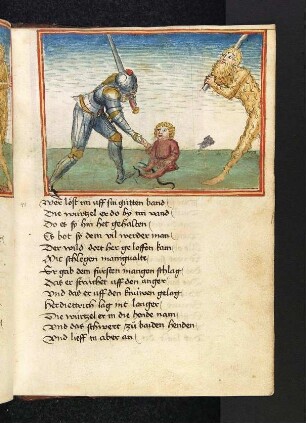 Wer lost im uff sin gutten band
Die wurtzel er do by im vand
Do es so hin het gehalten
Es bot so dem vil werder man
Der wild dort her geloffen kam
Mit schlegen manigualt
Er gab dem fürsten mangen schlag
Das er struchet uff den anger
Und das er uff den brunnen gelag
Her dietrich lag nit langer
Die wurtzel er in die hende nam
Und das schwert zů baiden henden
Und lieff in aber an